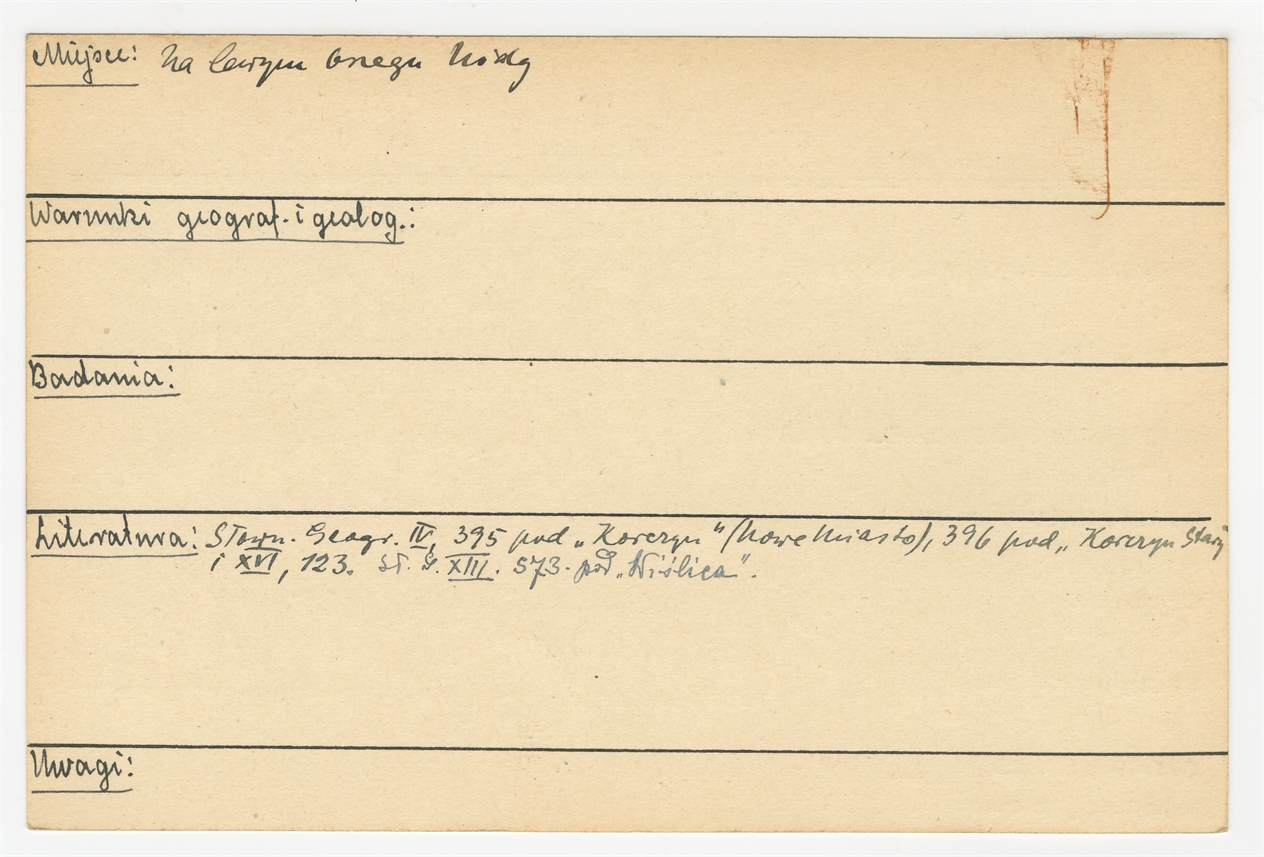 Miejsce: na lewym brzegu Nidy
Warunki geograf. i geolog.:
Badania:
Literatura: Słown. Geogr. IV, 395 pod „Korczyn" (Nowe Miasto), 396 pod „Korczyn Stary
i XVI, 123. Sł. G. XIII. 573. pod „Wiślica".
Uwagi: